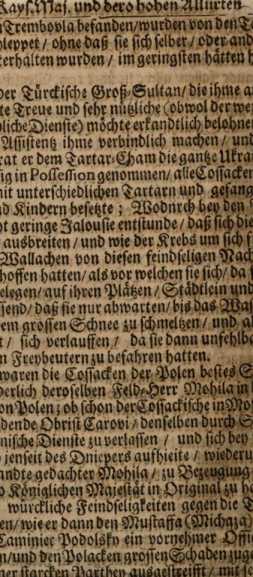 Kays. Maj. und dero hohen Alliirten
Trembovla befanden/wurden von den Ta
leppet / ohne daß sie sich selber / oder and
erhalten wurden / im geringsten hätten h
er Türckische Groß-Sultan/die ihme a
te Treue und sehr nützliche (obwol der we
liche Dienste) möchte erkandtlich belohne
Assistentz ihme verbindlich machen / und
rat er dem Tartar-Cham die gantze Ukra
ig in Possession genommen/alle Cossacken
mit unterschiedlichen Tartarn und gefang
nd Kindern besetzte; Wodurch bey den
ht geringe Jalousie entstunde / daß sich die
ausbreiten / und wie der Krebs um sich f
Wallachen von diesen feindseligen Nach
hoffen hatten/als vor welchen sie sich/da s
elegen/auf ihren Plätzen / Städtlein und
send/daß sie nur abwarten/bis das Was
em grossen Schnee zu schmeltzen / und al
t / sich verlauffen / da sie dann unfehlba
n Freybeutern zu befahren hatten.
waren die Cossacken der Polen bestes S
erlich deroselben Feld-Herr Mohila in
on Polen; ob schon der Cossackische in Mo
dende Obrist Carovi / denselben durch S
nische Dienste zu verlassen / und sich bey
jenseit des Dniepers aufhielte / wiederu
andte gedachter Mohila / zu Bezeugung
o Königlichen Majestät in Original zu h
würckliche Feindseligkeiten gegen die T
en/wie er dann den Mustaffa (Michaza)
Caminiec Podolsky ein vornehmer Offi
n/und den Polacken grossen Schaden zuge
er starcken Parthey ausgestreifft / mit se